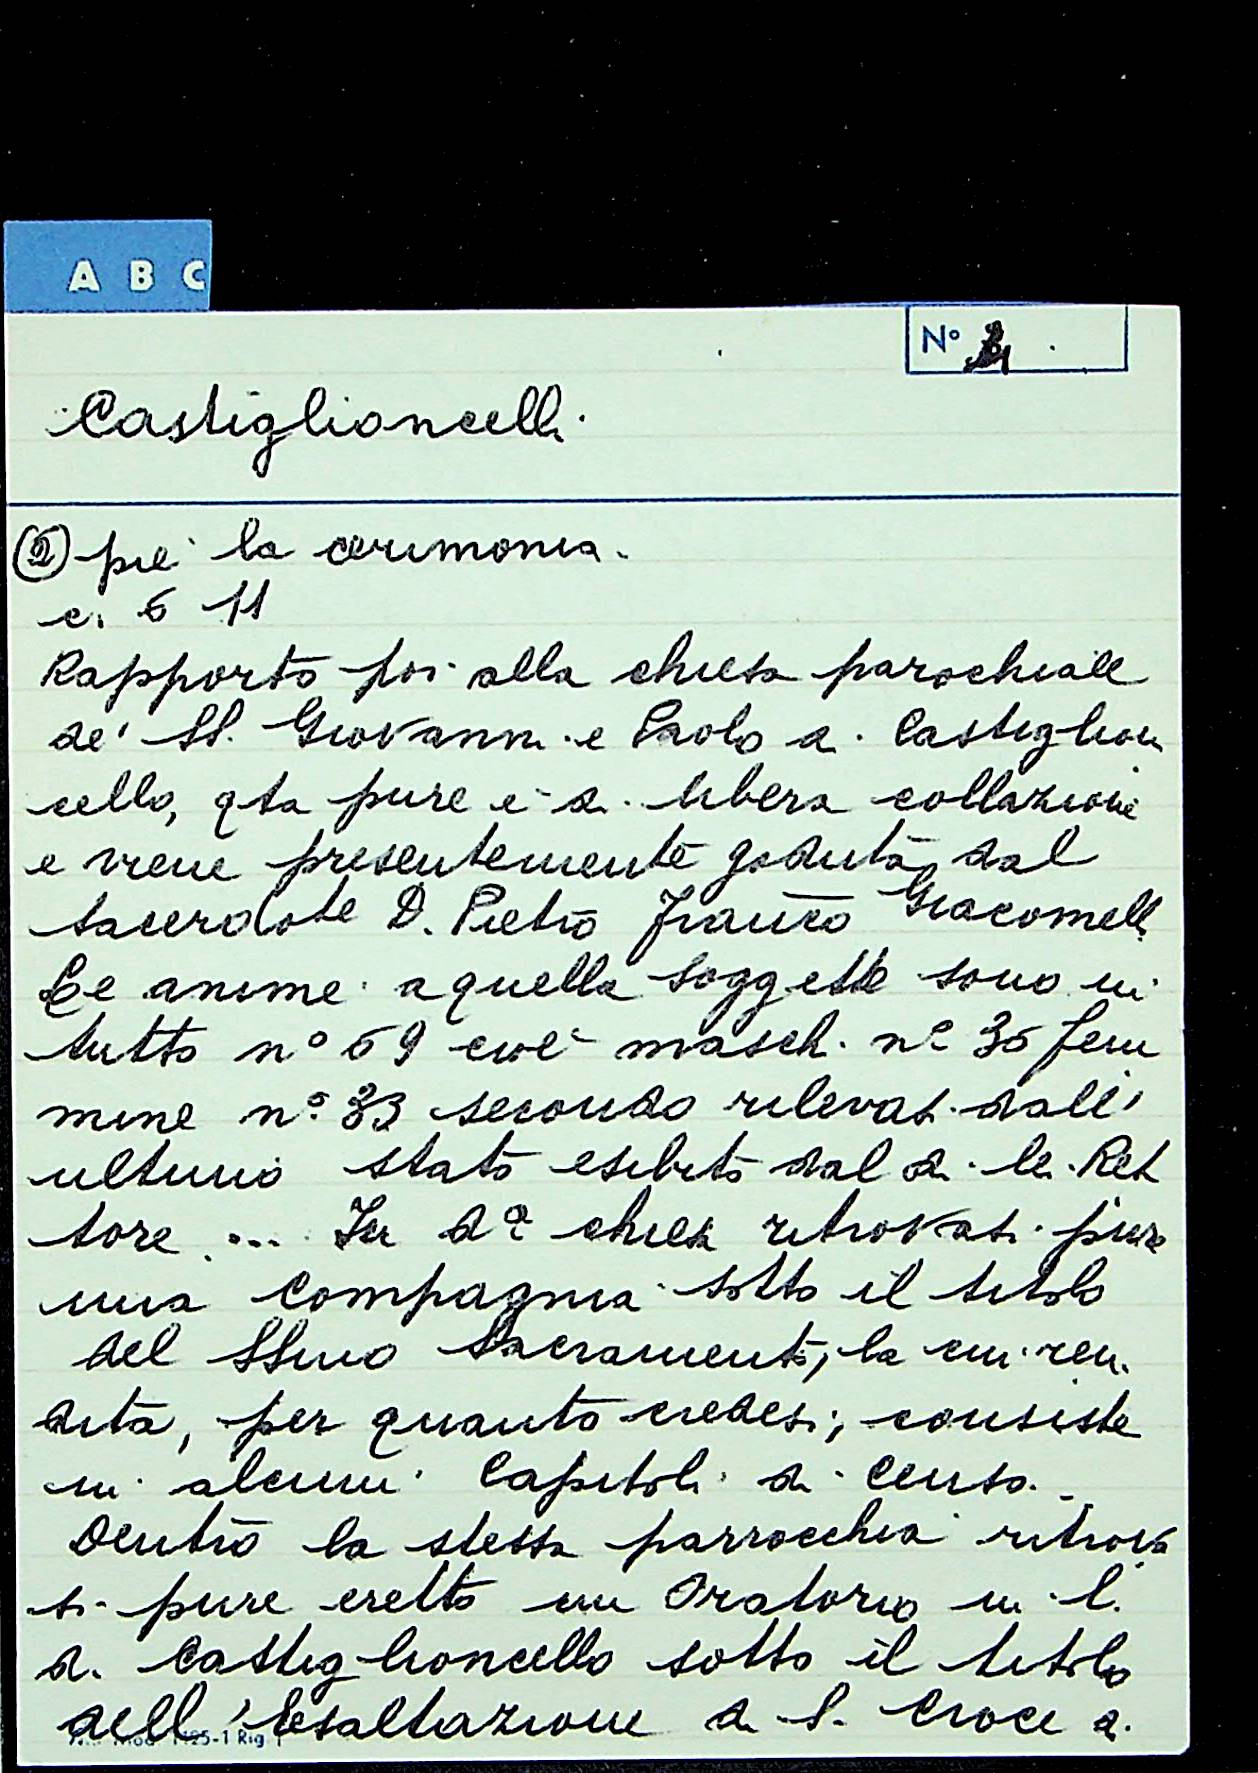 A B C
Nº
Castiglioncelli
(2) piè la cerimonia.
c. 6 11
Rapporto poi alla chiesa parochiale
de' SS. Giovanni e Paolo di Castiglion
cello, qta pure è di libera collazione
e viene presentemente goduta dal
sacerdote D. Pietro Franco Giacomelli
Le anime a quella soggette sono in
tutto nº 69 cioè maschi nº 36 fem
mine nº 33 secondo rilevasi dall'
ultimo stato esibito dal di lei Ret
tore .... In dª chiesa ritrovasi pure
una Compagnia sotto il titolo
del SSmo Sacramento, la cui ren
dita, per quanto credesi, consiste
in alcuni Capitoli di Censo.
Dentro la stessa parrocchia ritrova
si pure eretto un Oratorio in l.
d. Castiglioncello sotto il titolo
dell'Esaltazione di S. Croce di
Mod. 1125-1 Rig